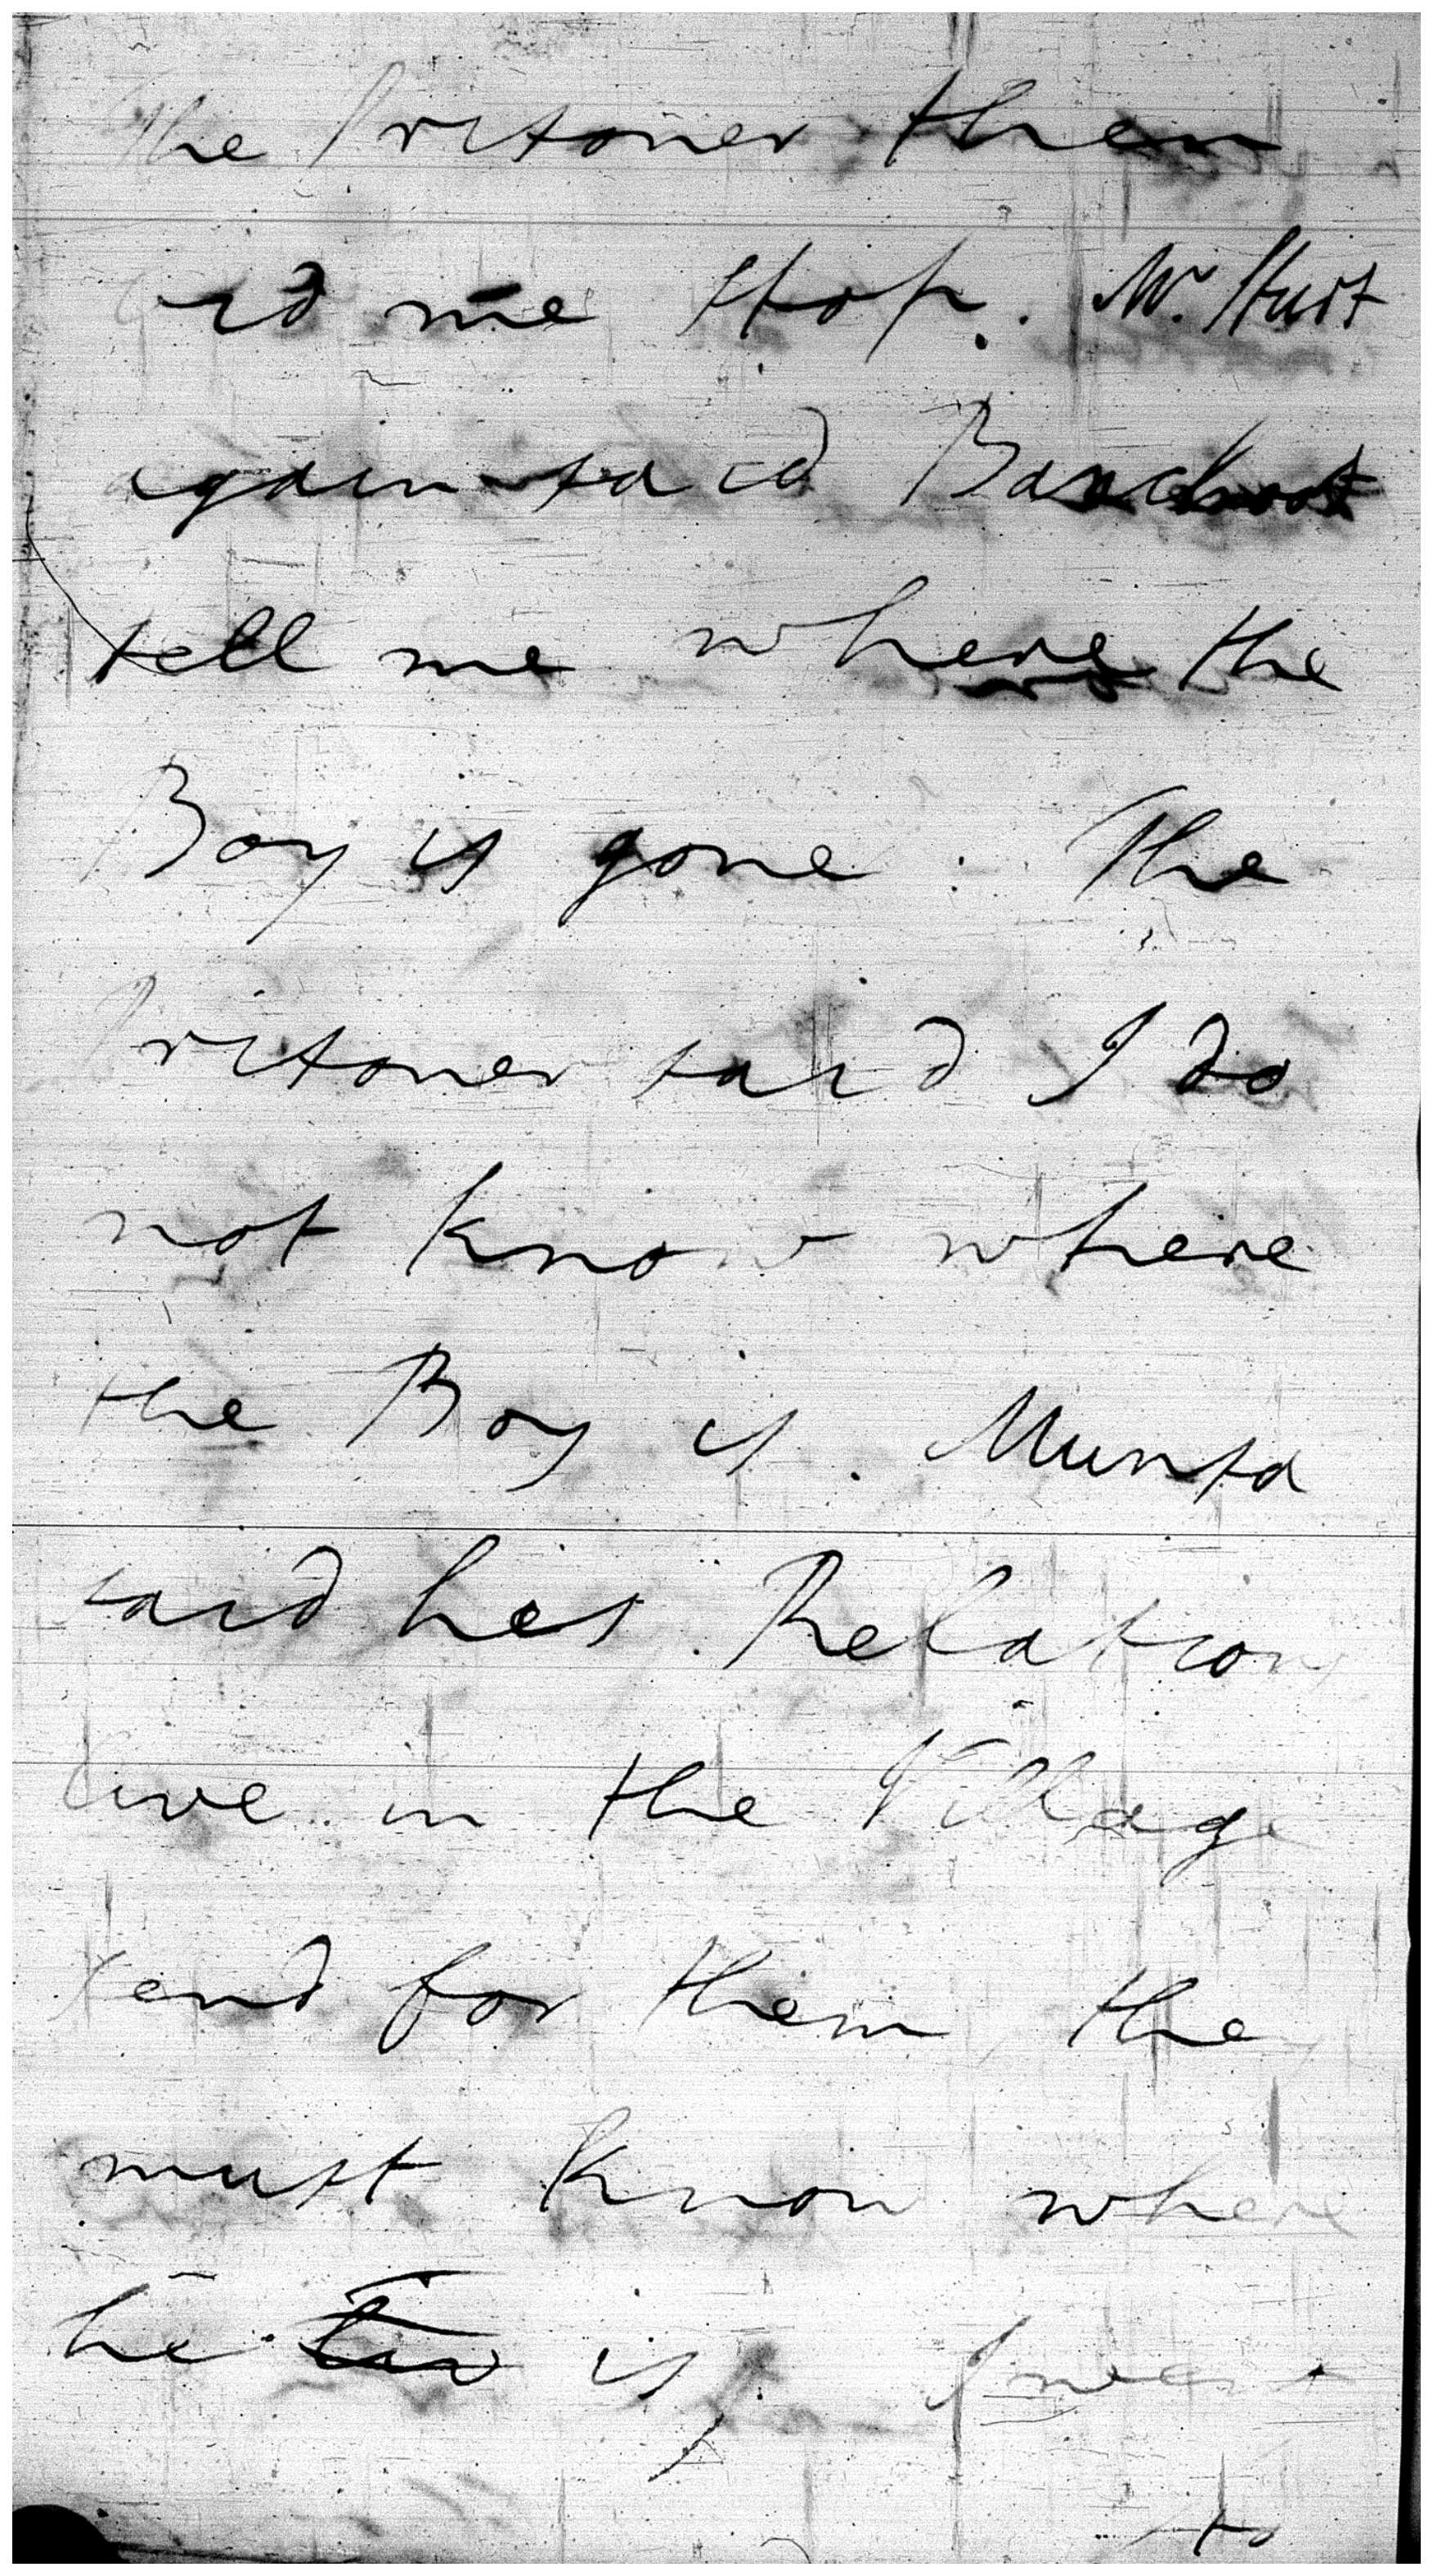 The Prisoner then
said me stop. Mr. Hurst
again said Banchoot
tell me where the
Boy is gone. The
Prisoner said I do
not know where
the Boy is. Munsa
said his Relations
live in the Village
send for them, they
must know where
he is, I went
to